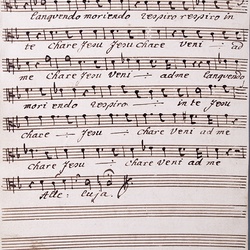 Languendo moriendo respiro respiro in
te Chare Jesu Jesu chare veni ad
me Chare Jesu Veni ad me Languendo
moriendo respiro in te Jesu
chare Jesu chare Jesu
chare Jesu chare veni ad me
Alleluja.